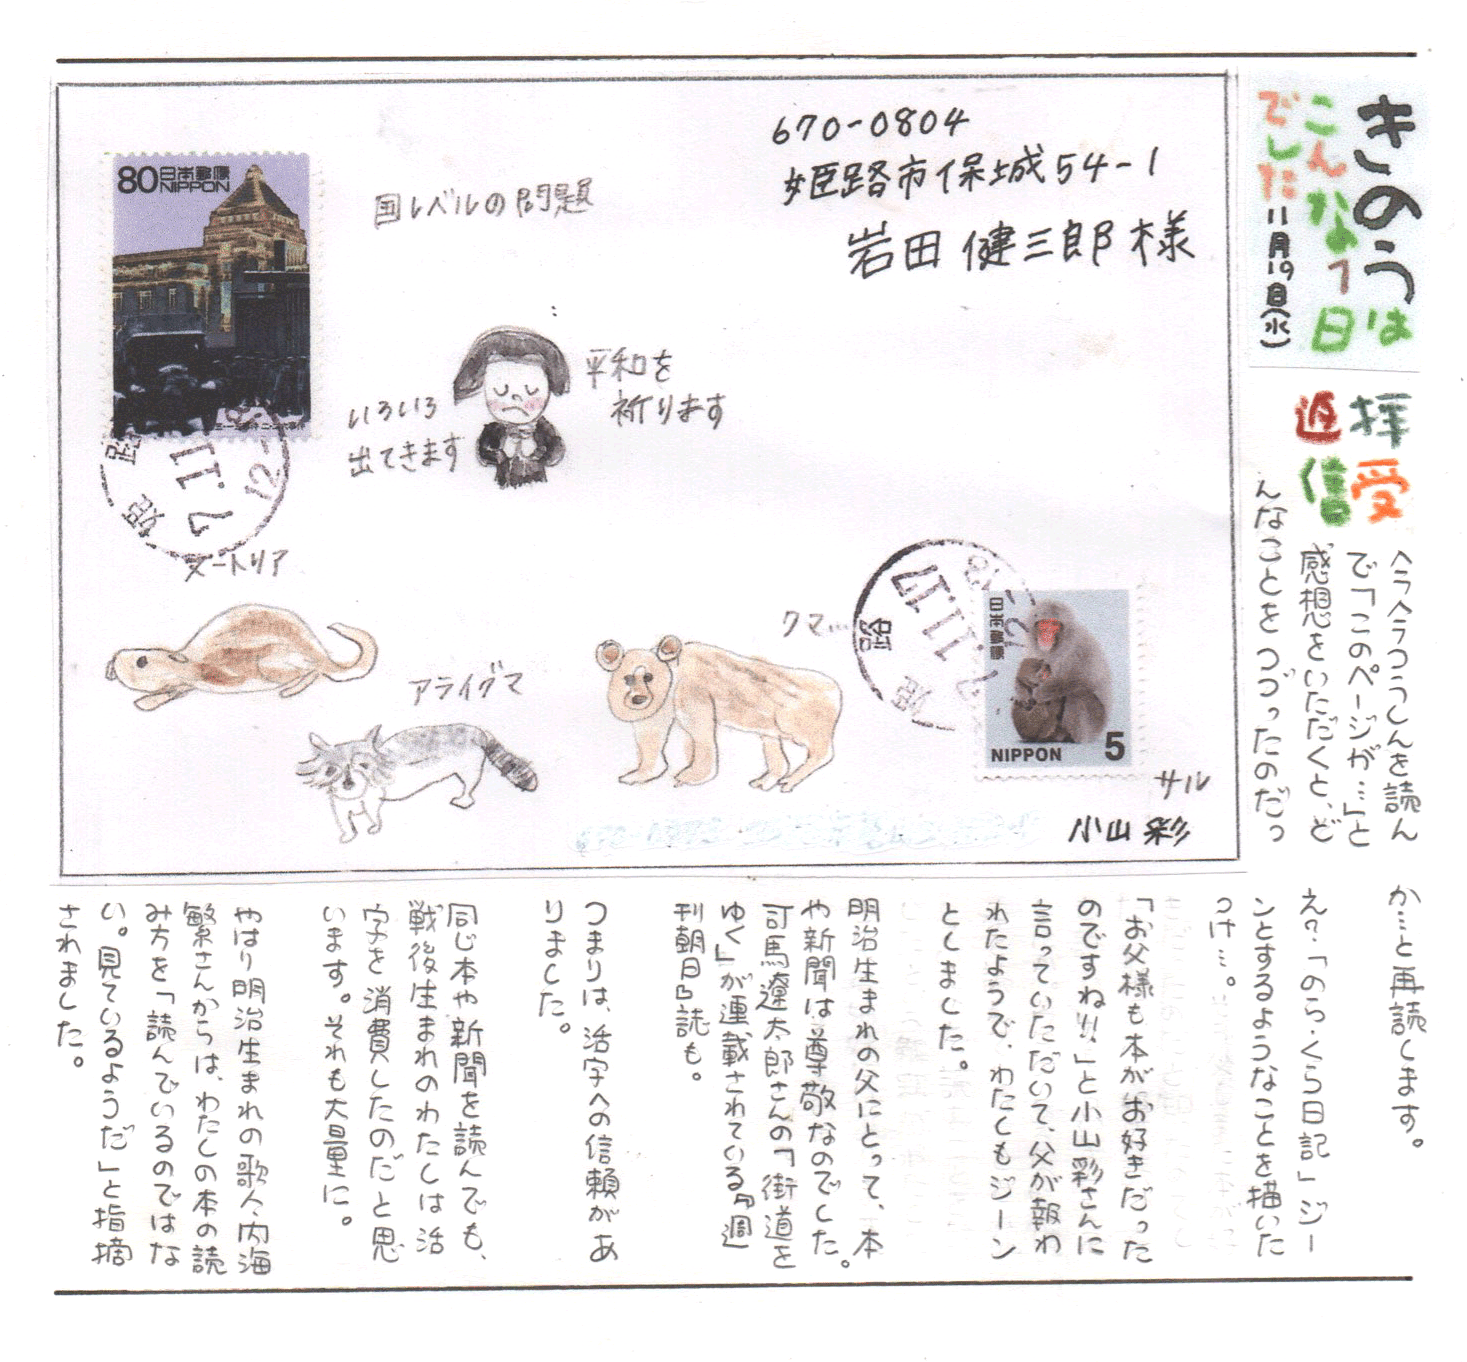 きのうは
こんな1日
でした
11月19日(水)
拝受
返信
今今つうしんを読ん
で「このページが…」と
感想をいただくと、ど
んなことをつづったのだっ
か…と再読します。
え?「のら・くら日記」ジー
ンとするようなことを描いた
っけ…。
「お父様も本がお好きだった
のですね!!」と小山彩さんに
言っていただいて、父が報わ
れたようで、わたしもジーン
としました。
明治生まれの父にとって、本
や新聞は尊敬なのでした。
司馬遼太郎さんの「街道を
ゆく」が連載されている『週
刊朝日』誌も。
つまりは、活字への信頼があ
りました。
同じ本や新聞を読んでも、
戦後生まれのわたしは活
字を消費したのだと思
います。それも大量に。
やはり明治生まれの歌人・内海
繁さんからは、わたしの本の読
み方を「読んでいるのではな
い。見ているようだ」と指摘
されました。
670-0804
姫路市保城54-1
岩田健三郎様
80 日本郵便
NIPPON
国レベルの問題
平和を
祈ります
いろいろ
出てきます
姫路
7.11.17
12-
ヌートリア
アライグマ
クマ…
姫路
7.11.17
12-18
日本郵便
NIPPON 5
サル
小山彩